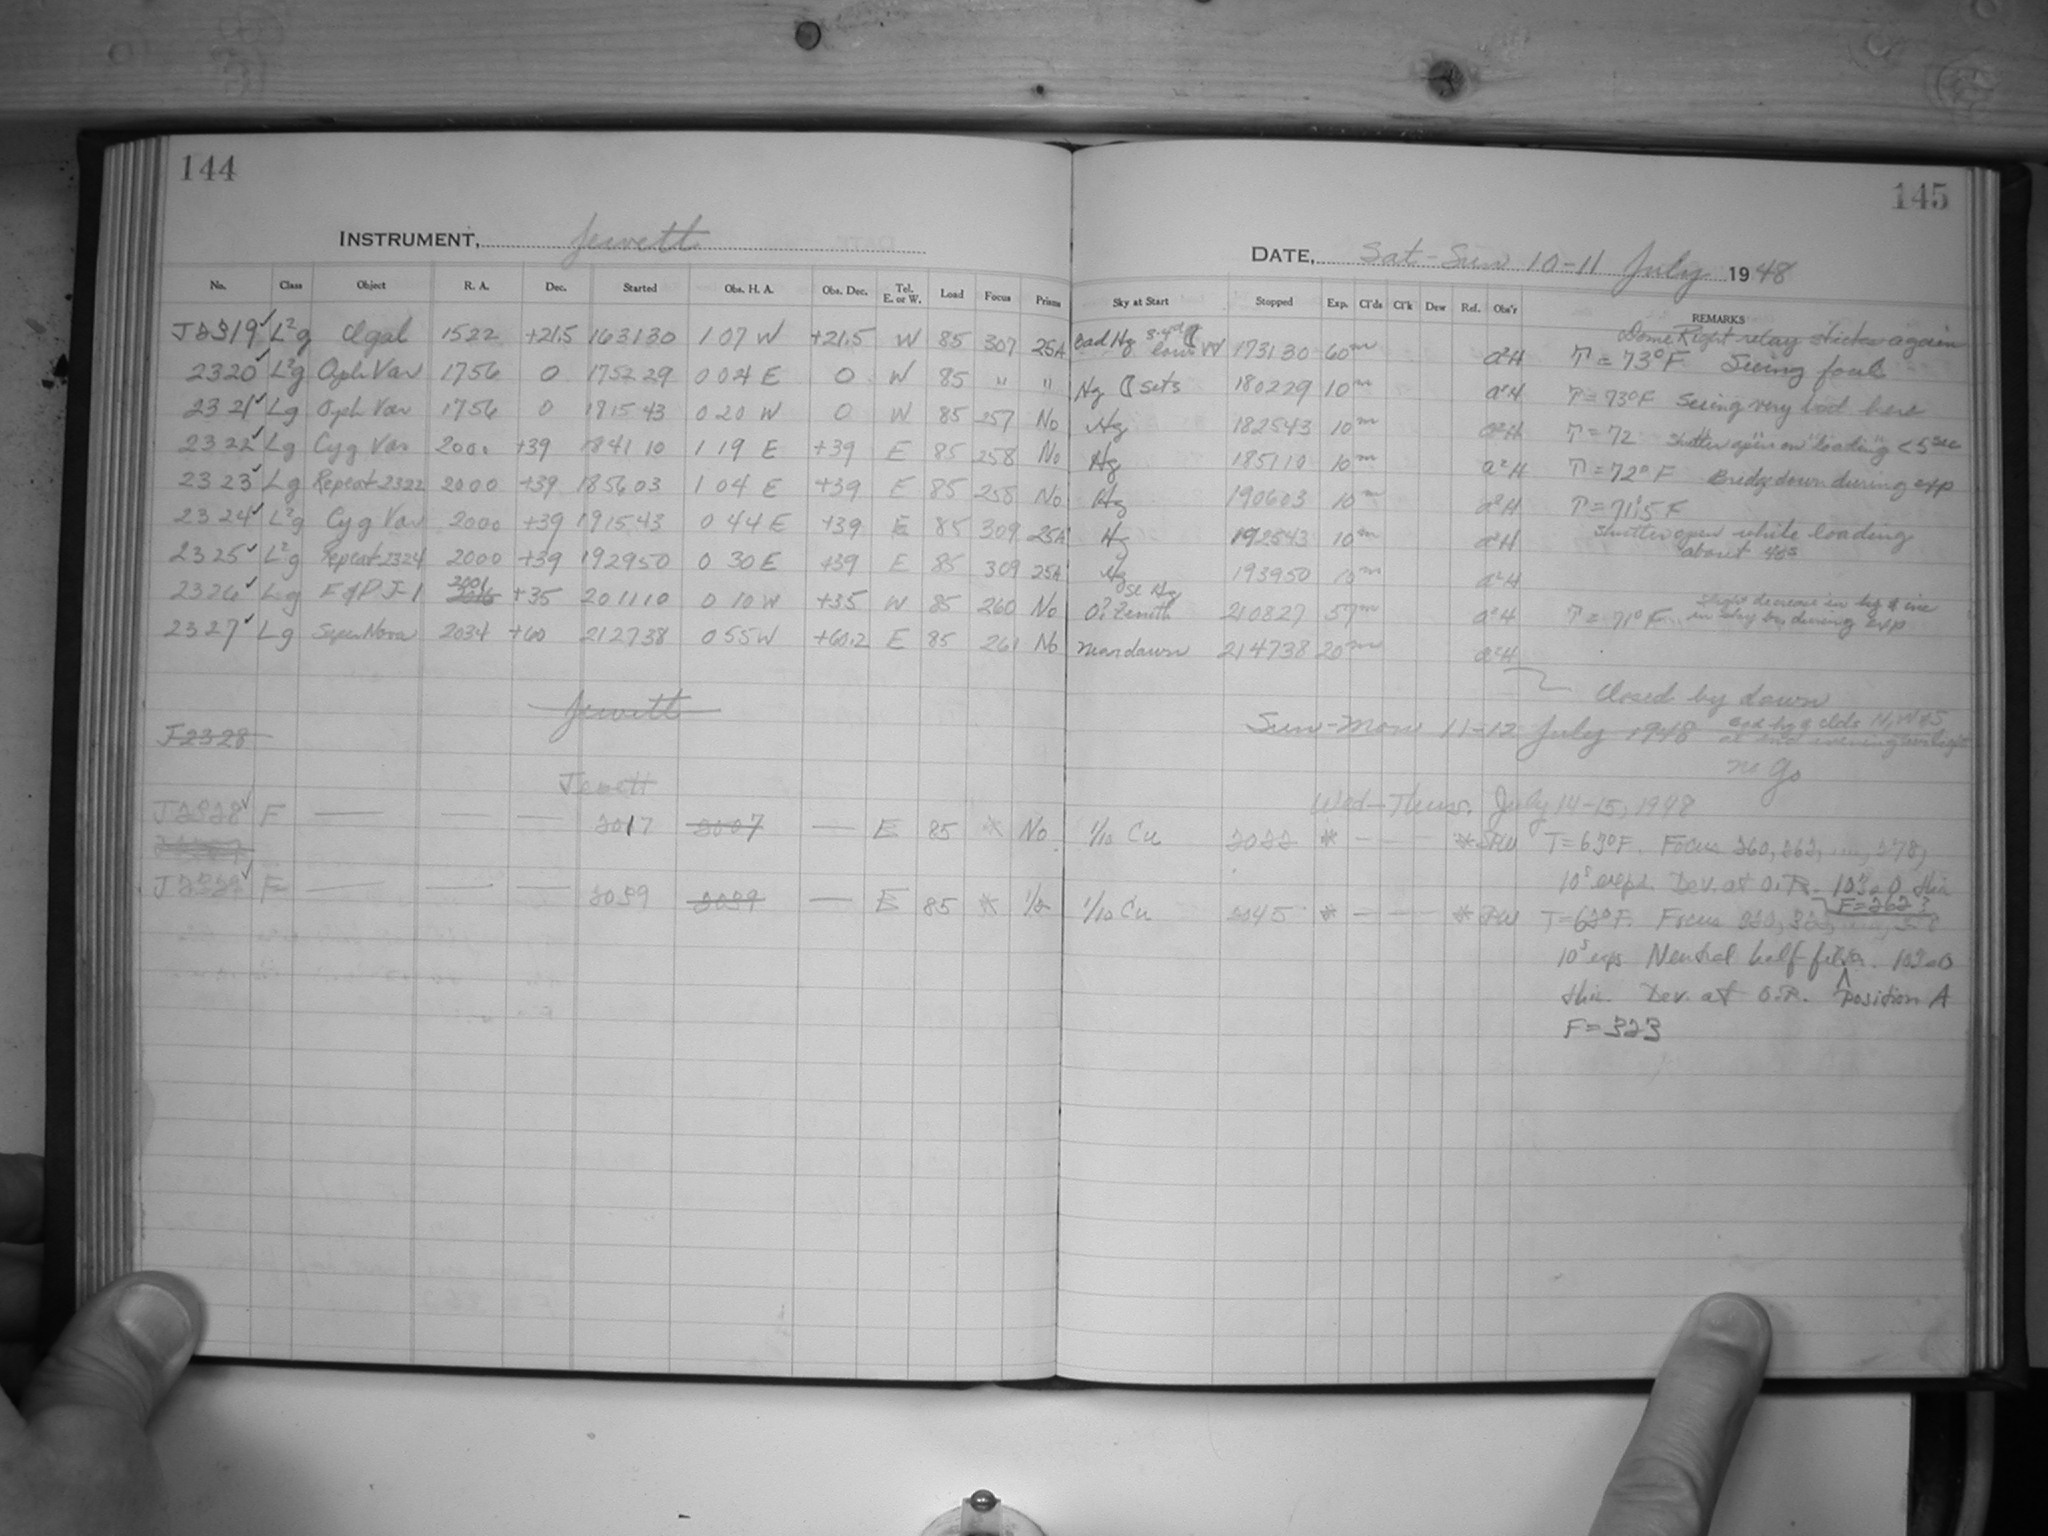 144
145
INSTRUMENT, Jewett
DATE, Sat-Sun 10-11 July 1948
No. Class Object R. A. Dec. Started Obs. H. A. Obs. Dec. Tel. E. or W. Load Focus Prisms Sky at Start Stopped Exp. Cl'ds Cl'k Dew Ref. Obs'r REMARKS
Dome Right relay sticks again
J2319 L²g 1522 +21.5 163130 1 07 W +21.5 W 85 307 25A Bad Hg low W 173130 60m a²H T = 73°F Seeing foul
2320 L²g Oph Var 1756 0 175229 0 04 E 0 W 85 " " Hg sets 180229 10m a²H T = 73°F Seeing very bad here
2321 Lg Oph Var 1756 0 181543 0 20 W 0 W 85 257 No Hg 182543 10m a²H T = 72 Shutter open on "loading" <5sec
2322 Lg Cyg Var 2000 +39 184110 1 19 E +39 E 85 258 No Hg 185110 10m a²H T = 72°F Bridge down during exp
2323 Lg Repeat 2322 2000 +39 185603 1 04 E +39 E 85 258 No Hg 190603 10m a²H T = 71.5 F
2324 L²g Cyg Var 2000 +39 191543 0 44 E +39 E 85 309 25A Hg 192543 10m a²H Shutter open while loading about 40s
2325 L²g Repeat 2324 2000 +39 192950 0 30 E +39 E 85 309 25A Hg 193950 10m a²H
2326 Lg +35 201110 0 10 W +35 W 85 260 No Sl Hg O? Zenith 210827 57m a²H T = 71°F Slight decrease in hg & inc in sky during exp
2327 Lg Super Nova 2034 +60 212738 0 55 W +60.2 E 85 261 No near dawn 214738 20m a²H
Closed by dawn
Jewett
J2328 Sun-Mon 11-12 July 1948 Bad hg & clds N, W & S
at end evening twilight
no go
Jewett
Wed-Thurs. July 14-15, 1948
J2328 F — — — 2017 2007 — E 85 * No 1/10 Cu 2022 * — — — * T=63°F. Focus 260, 262, ...., 278,
10s exps. Dev. at O.R. 103a0 thin
F=262?
J2329 F — — — 2039 2039 — E 85 * 1/2 1/10 Cu 2045 * — — — * T=62°F. Focus 320, 322,
10s exps Neutral half-filter. 103a0
thin. Dev. at O.R. position A
F=323